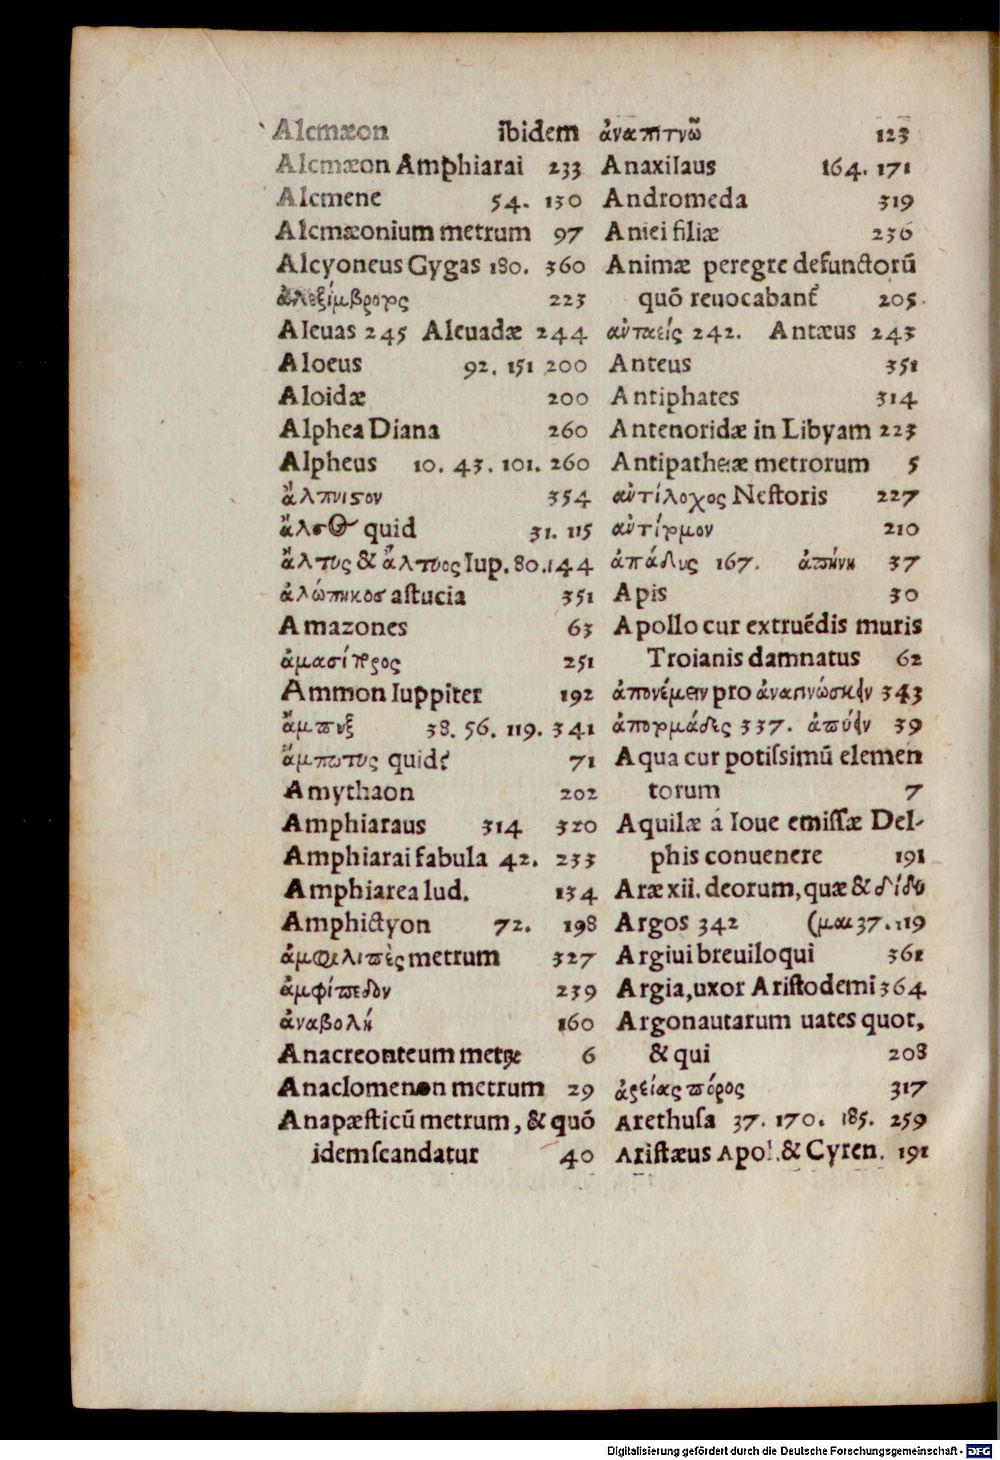 Alcmæon ibidem
Alcmæon Amphiarai 233
Alcmene 54. 130
Alcmæonium metrum 97
Alcyoneus Gygas 180. 360
ἀλεξίμβροτος 223
Aleuas 245 Aleuadæ 244
Aloeus 92. 151 200
Aloidæ 200
Alphea Diana 260
Alpheus 10. 43. 101. 260
ἄλπνιστον 354
ἄλσος quid 31. 115
ἄλτις & ἄλτιος Iup. 80. 144
ἀλώπηκος astucia 351
Amazones 63
251
Ammon Iuppiter 192
ἄμπυξ 38. 56. 119. 341
ἄμπωτις quid? 71
Amythaon 202
Amphiaraus 314 320
Amphiarai fabula 42. 233
Amphiarea lud. 134
Amphictyon 72. 198
metrum 327
ἀμφίπεδον 239
ἀναβολή 160
Anacreonteum metꝝ 6
Anaclomenon metrum 29
Anapæsticū metrum, & quō
idem scandatur 40
ἀναπιτνῶ 123
Anaxilaus 164. 171
Andromeda 319
Aniei filiæ 236
Animæ peregre defunctorū
quō reuocabant᷑ 205
242. Antæus 243
Anteus 351
Antiphates 314
Antenoridæ in Libyam 223
Antipatheiæ metrorum 5
ἀντίλοχος Nestoris 227
210
167. ἀπήνη 37
Apis 30
Apollo cur extruēdis muris
Troianis damnatus 62
ἀπονέμειν pro ἀναγινώσκειν 343
337. ἀπύειν 39
Aqua cur potissimū elemen
torum 7
Aquilæ á Ioue emissæ Del-
phis conuenere 191
Aræ xii. deorum, quæ & δίδυ
Argos 342 (μαι 37. 119
Argiui breuiloqui 361
Argia, uxor Aristodemi 364
Argonautarum uates quot,
& qui 208
ἀρείας πόρος 317
Arethusa 37. 170. 185. 259
Aristæus Apol. & Cyren. 191
Digitalisierung gefördert durch die Deutsche Forschungsgemeinschaft - DFG